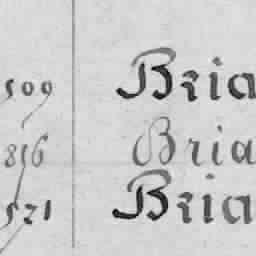 509 Bria
856 Bria
521 Bria